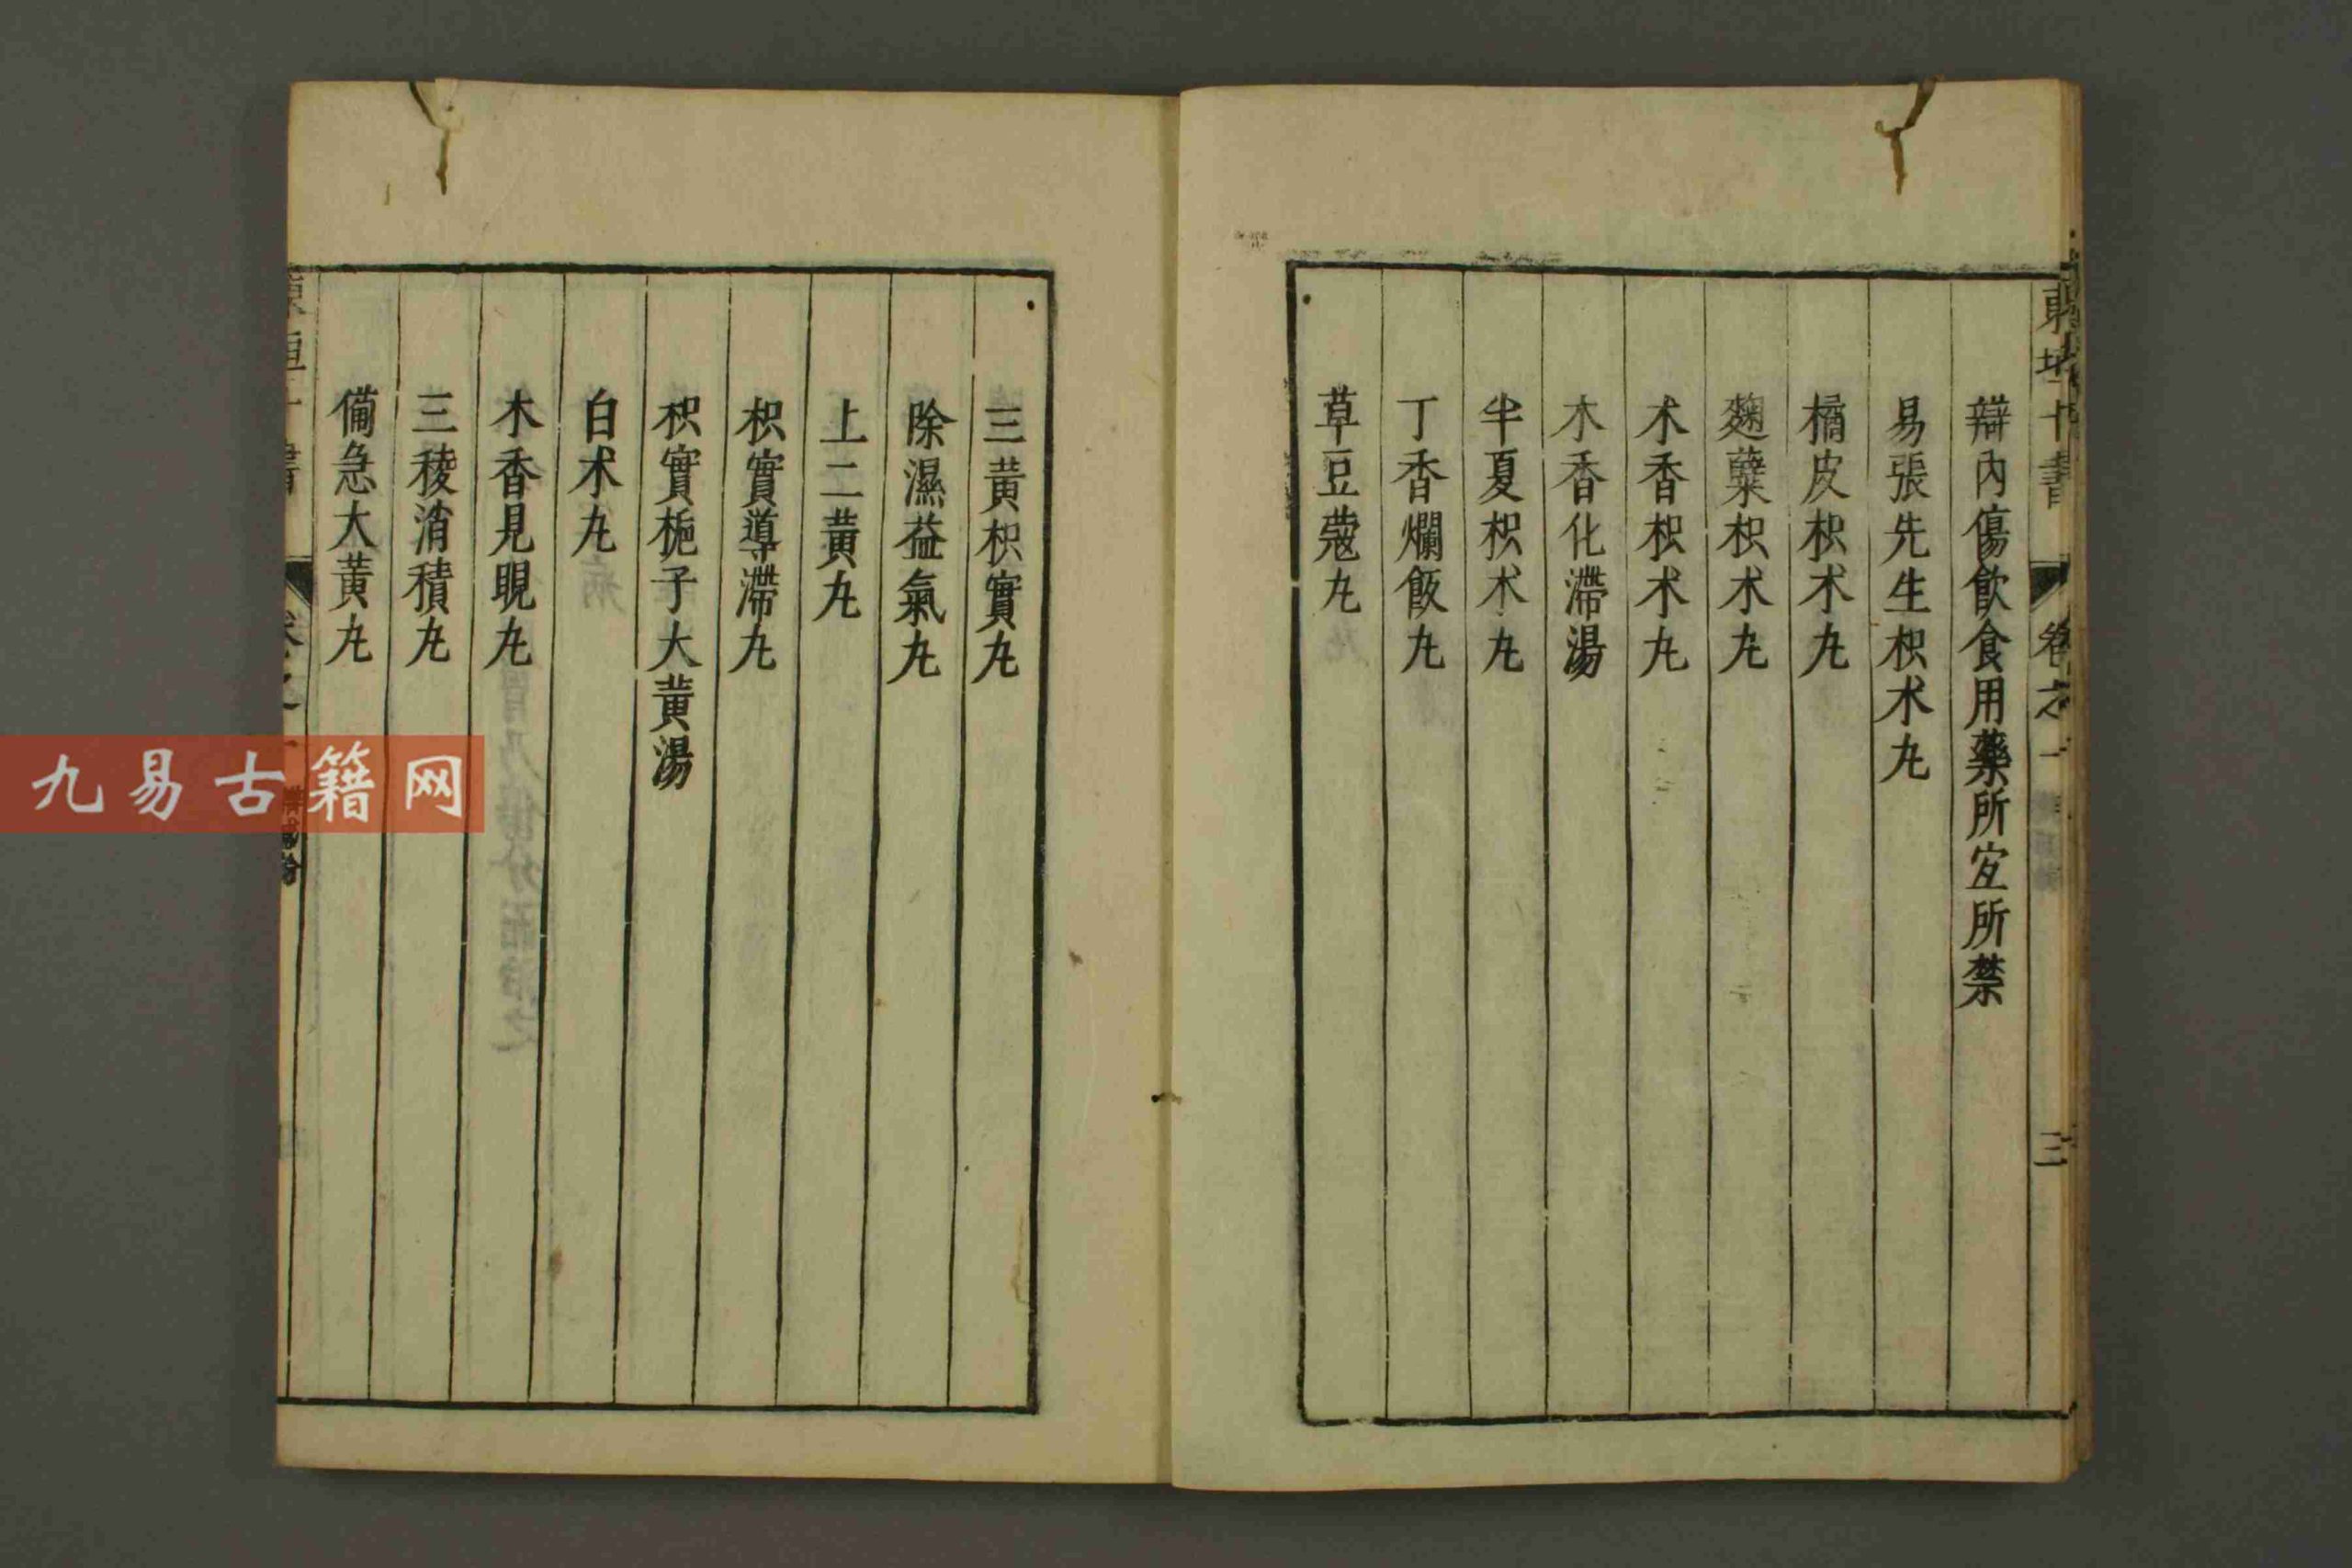 東垣十書 卷之一 三
辯內傷飲食用藥所宜所禁
易張先生枳术丸
橘皮枳术丸
麴蘗枳术丸
木香枳术丸
木香化滯湯
半夏枳术丸
丁香爛飯丸
草豆蔻丸
三黃枳實丸
除濕益氣丸
上二黃丸
枳實導滯丸
枳實梔子大黃湯
白术丸
木香見睍丸
三稜消積丸
備急大黃丸
東垣十書 卷之一
九易古籍网